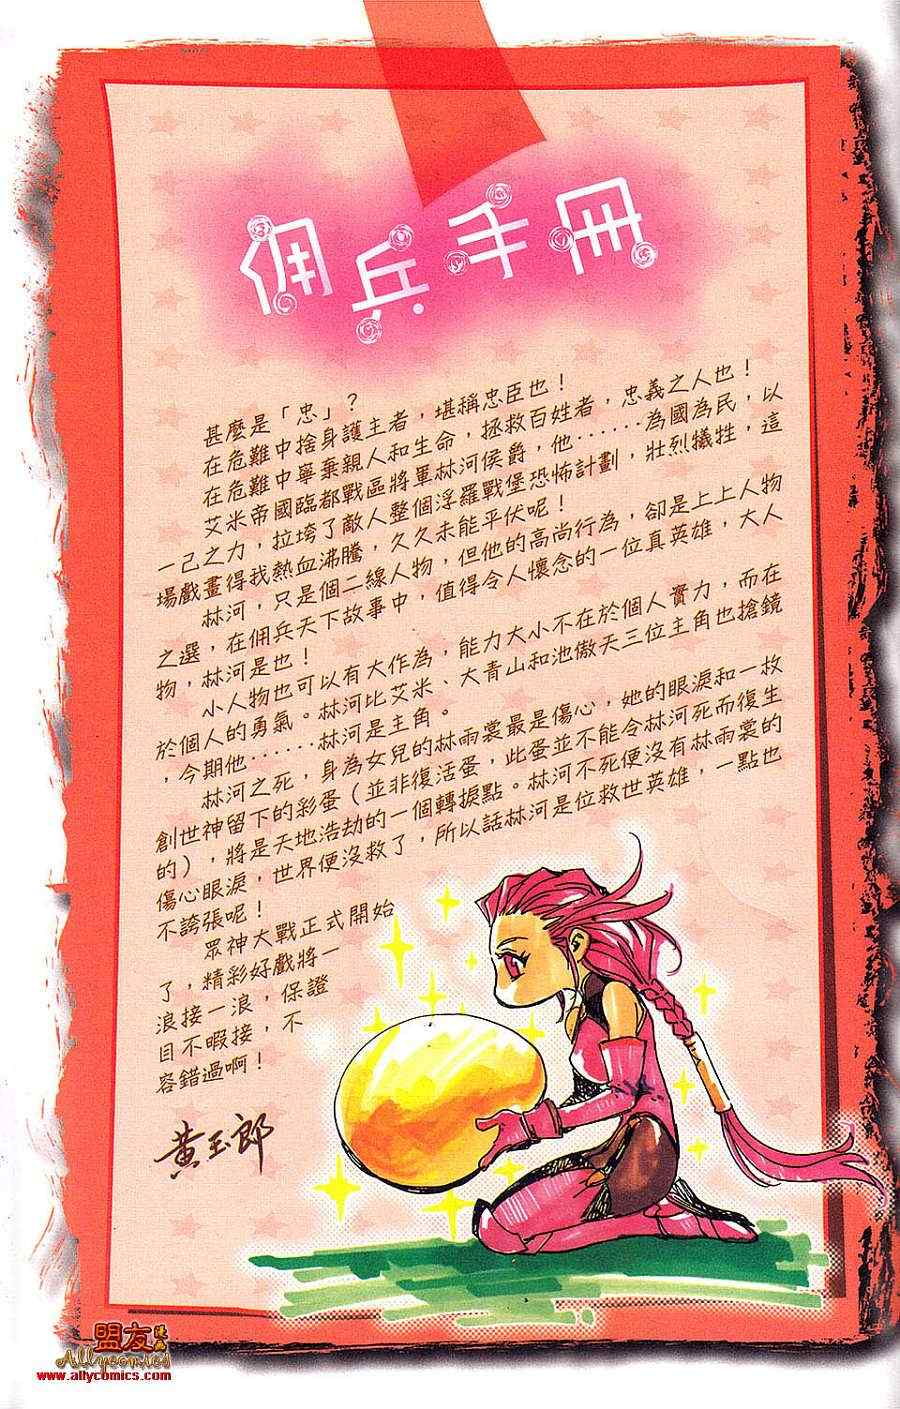 佣兵手冊
甚麼是「忠」？
在危難中捨身護主者，堪稱忠臣也！
在危難中寧棄親人和生命，拯救百姓者，忠義之人也！
艾米帝國臨都戰區將軍林河侯爵，他......為國為民，以
一己之力，拉垮了敵人整個浮羅戰堡恐怖計劃，壯烈犧牲，這
場戲畫得我熱血沸騰，久久未能平伏呢！
林河，只是個二線人物，但他的高尚行為，卻是上上人物
之選，在佣兵天下故事中，值得令人懷念的一位真英雄，大人
物，林河是也！
小人物也可以有大作為，能力大小不在於個人實力，而在
於個人的勇氣。林河比艾米、大青山和池傲天三位主角也搶鏡
，今期他......林河是主角。
林河之死，身為女兒的林雨裳最是傷心，她的眼淚和一枚
創世神留下的彩蛋（並非復活蛋，此蛋並不能令林河死而復生
的），將是天地浩劫的一個轉捩點。林河不死便沒有林雨裳的
傷心眼淚，世界便沒救了，所以話林河是位救世英雄，一點也
不誇張呢！
眾神大戰正式開始
了，精彩好戲將一
浪接一浪，保證
目不暇接，不
容錯過啊！
黃玉郎
盟友漫画
Allycomics
www.allycomics.com